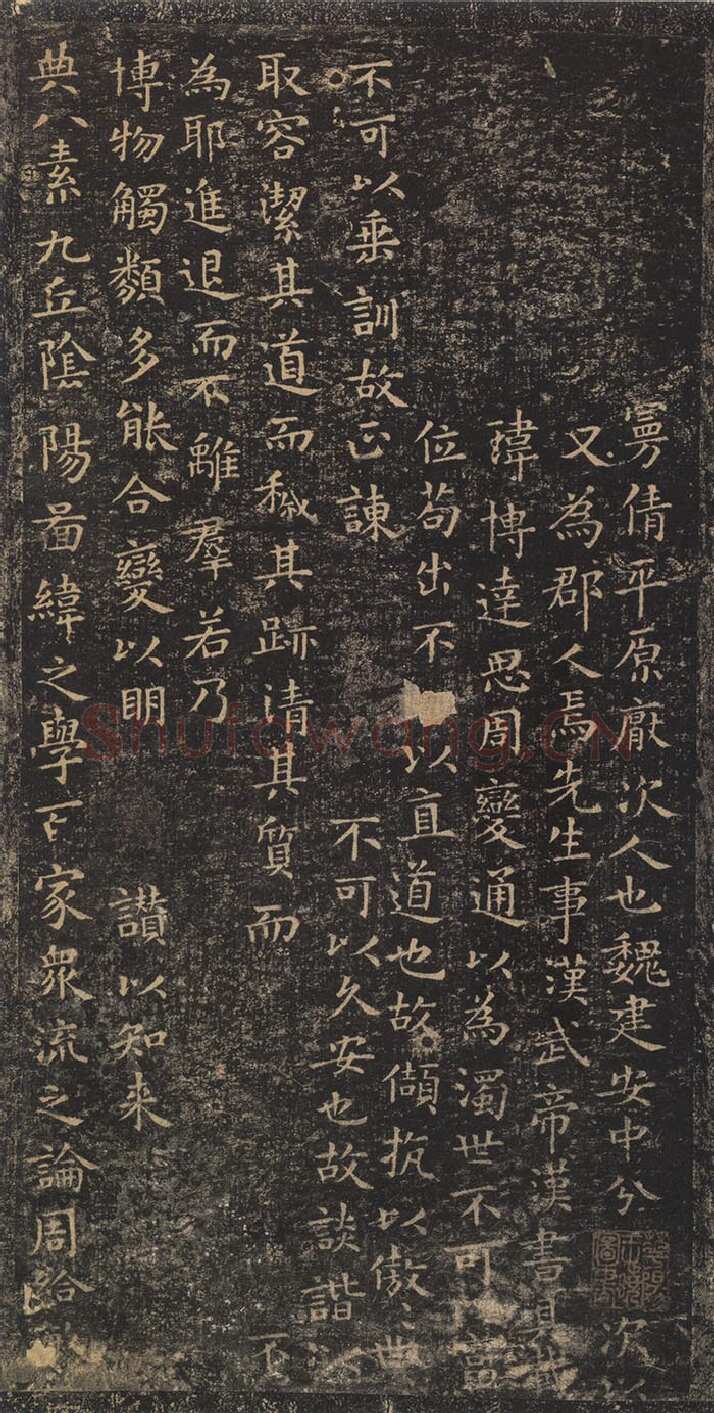 曼倩平原厭次人也魏建安中分次以
又為郡人焉先生事漢武帝漢書具載
瑋博達思周變通以為濁世不可富
位苟出不以直道也故頡抗以傲世
不可以垂訓故正諫不可以久安也故談諧以
取容潔其道而穢其跡清其質而不
為耶進退而不離羣若乃
博物觸類多能合變以明讃以知来
典八素九丘陰陽啚緯之學百家衆流之論周給敏
Shufawang.CN